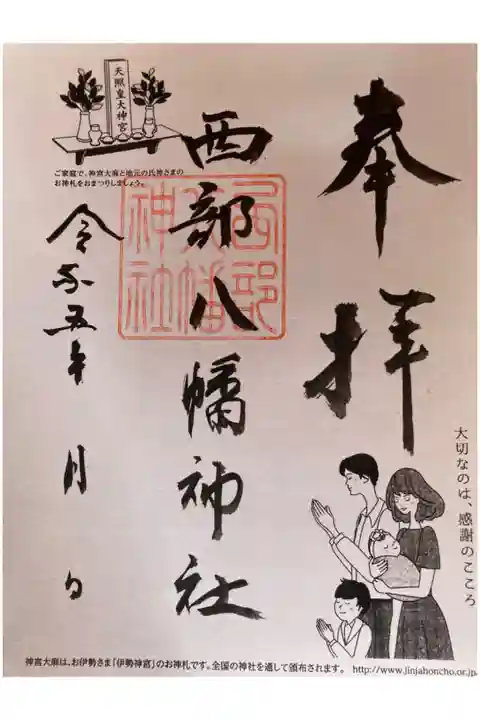 奉拝
西部八幡神社
西部八幡神社
令和五年 月 日
天照皇大神宮
ご家庭で、神宮大麻と地元の氏神さまの
お神札をおまつりしましょう。
大切なのは、感謝のこころ
神宮大麻は、お伊勢さま「伊勢神宮」のお神札です。全国の神社を通して頒布されます。 http://www.jinjahoncho.or.jp